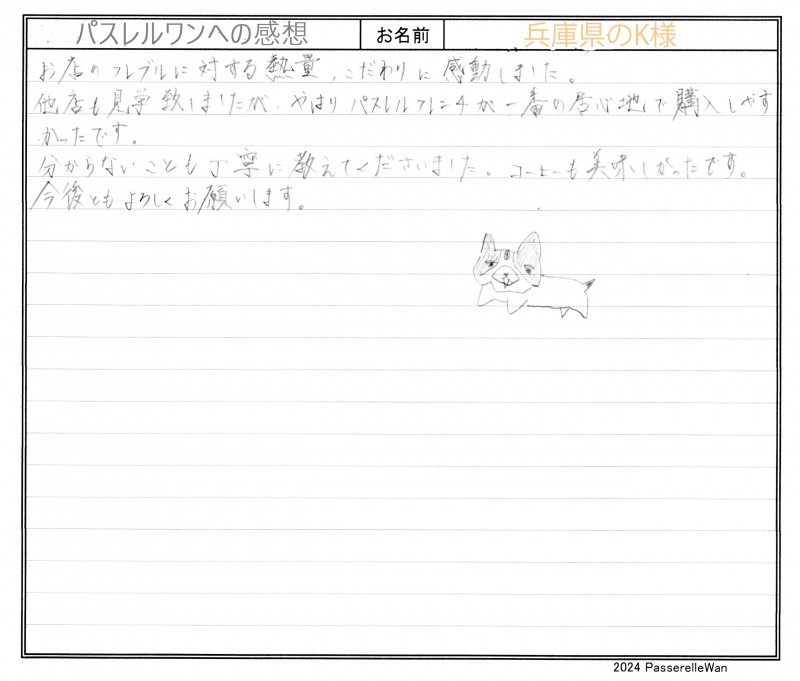 パスレルワンへの感想 お名前 兵庫県のK様
お店のフレブルに対する熱量、こだわりに感動しました。
他店も見学致しましたが、やはりパスレルフレンチが一番の居心地で購入しやす
かったです。
分からないことも丁寧に教えてくださいました。コーヒーも美味しかったです。
今後ともよろしくお願いします。
2024 PasserelleWan